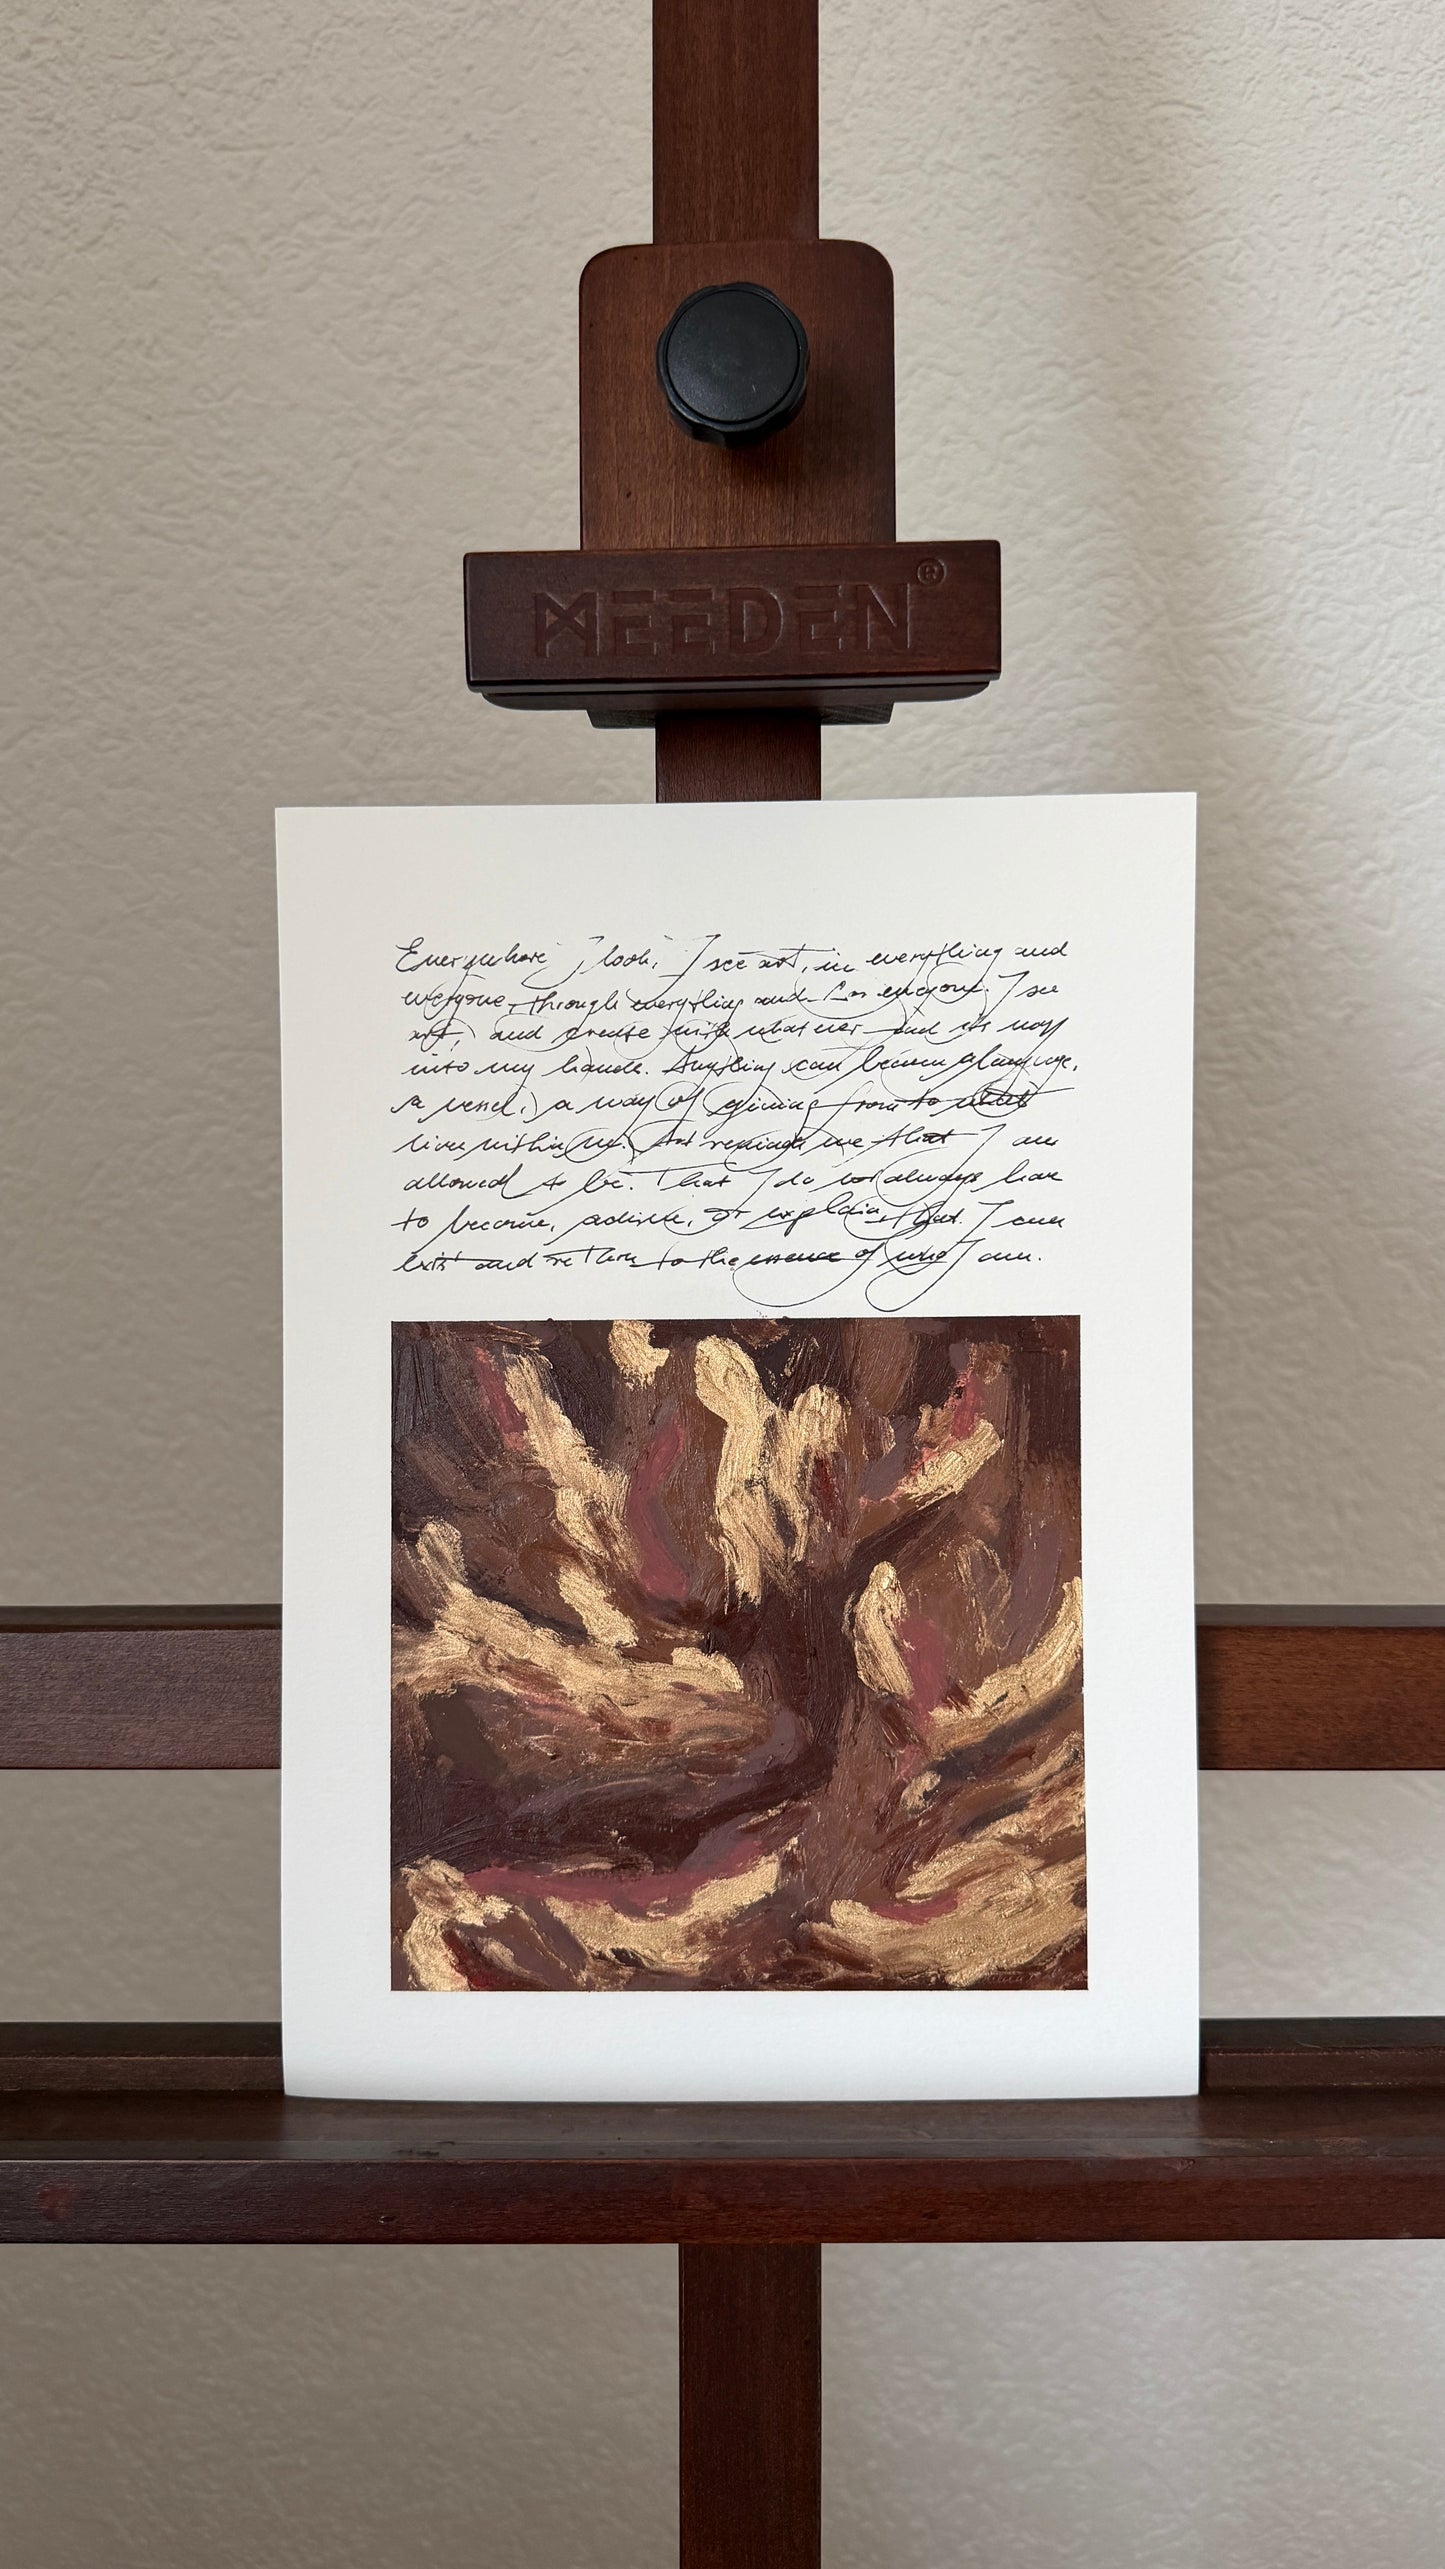 MEEDEN®
Everywhere I look, I see art, in everything and
everyone, through everything and for everyone. I see
art, and create with whatever find its way
into my hands. Anything can become a language,
a vessel, a way of giving form to what
lives within me. Art reminds me that I am
allowed to be. That I do not always have
to become, achieve, or explain, that I can
exist and return to the essence of who I am.